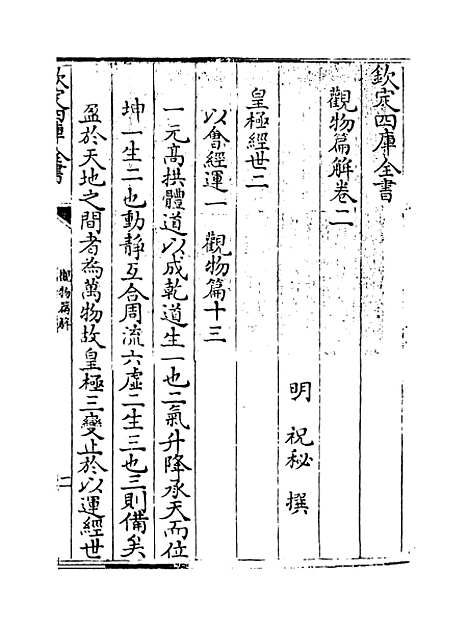 欽定四庫全書
觀物篇解卷二
明 祝秘 撰
皇極經世二
以會經運一 觀物篇十三
一元高拱體道以成乾道生一也二氣升降承天而位
坤一生二也動靜互合周流六虛二生三也三則備矣
盈於天地之間者為萬物故皇極三變止於以運經世
欽定四庫全書
觀物篇解